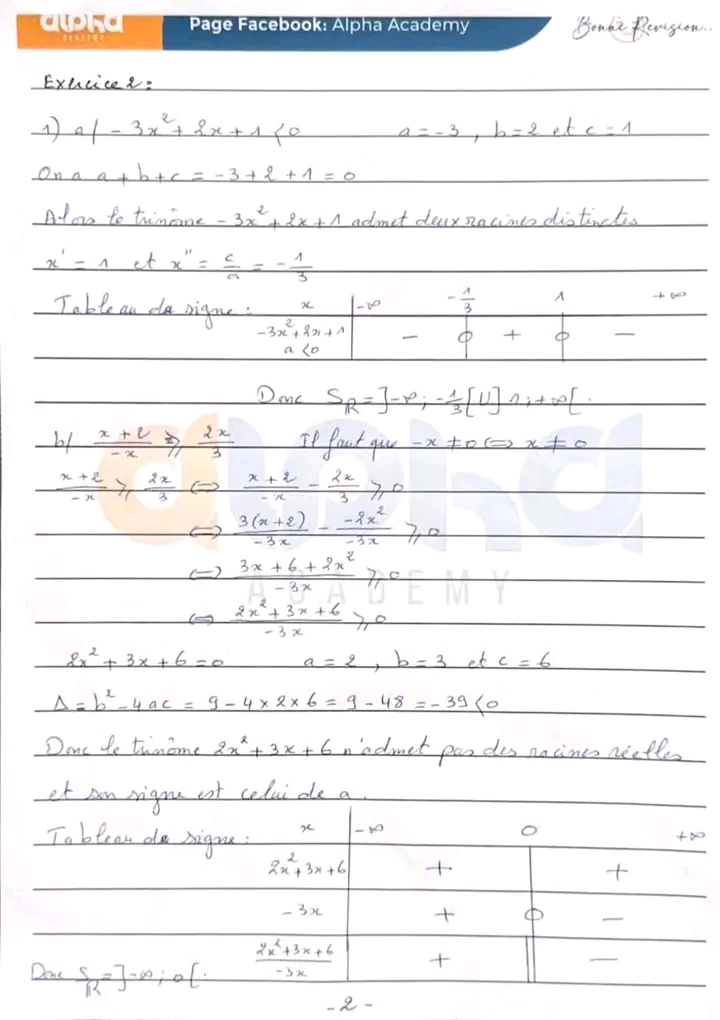 alpha
ACADEMY
Page Facebook: Alpha Academy
Bonne Revision..
Exercice 2:
1) a/ -3x² + 2x + 1 < 0 a = -3, b = 2 et c = 1
On a a + b + c = -3 + 2 + 1 = 0
Alors le trinôme -3x² + 2x + 1 admet deux racines distinctes
x' = 1 et x'' = c/a = -1/3
Tableau de signe : x -∞ -1/3 1 +∞
-3x² + 2x + 1 - 0 + 0 -
a < 0
Donc S_ℝ = ]-∞; -1/3[ U ]1; +∞[.
b/ (x+2)/(-x) ≥ 2x/3 Il faut que -x ≠ 0 ⇔ x ≠ 0
(x+2)/(-x) ≥ 2x/3 ⇔ (x+2)/(-x) - 2x/3 ≥ 0
⇔ 3(x+2)/(-3x) - (-2x²)/(-3x) ≥ 0
⇔ (3x + 6 + 2x²)/(-3x) ≥ 0
⇔ (2x² + 3x + 6)/(-3x) ≥ 0
ACADEMY
2x² + 3x + 6 = 0 a = 2, b = 3 et c = 6
Δ = b² - 4ac = 9 - 4 × 2 × 6 = 9 - 48 = -39 < 0
Donc le trinôme 2x² + 3x + 6 n'admet pas des racines réelles
et son signe est celui de a.
Tableau de signe : x -∞ 0 +∞
2x² + 3x + 6 + +
-3x + 0 -
(2x² + 3x + 6)/(-3x) + || -
Donc S_ℝ = ]-∞; 0[.
- 2 -